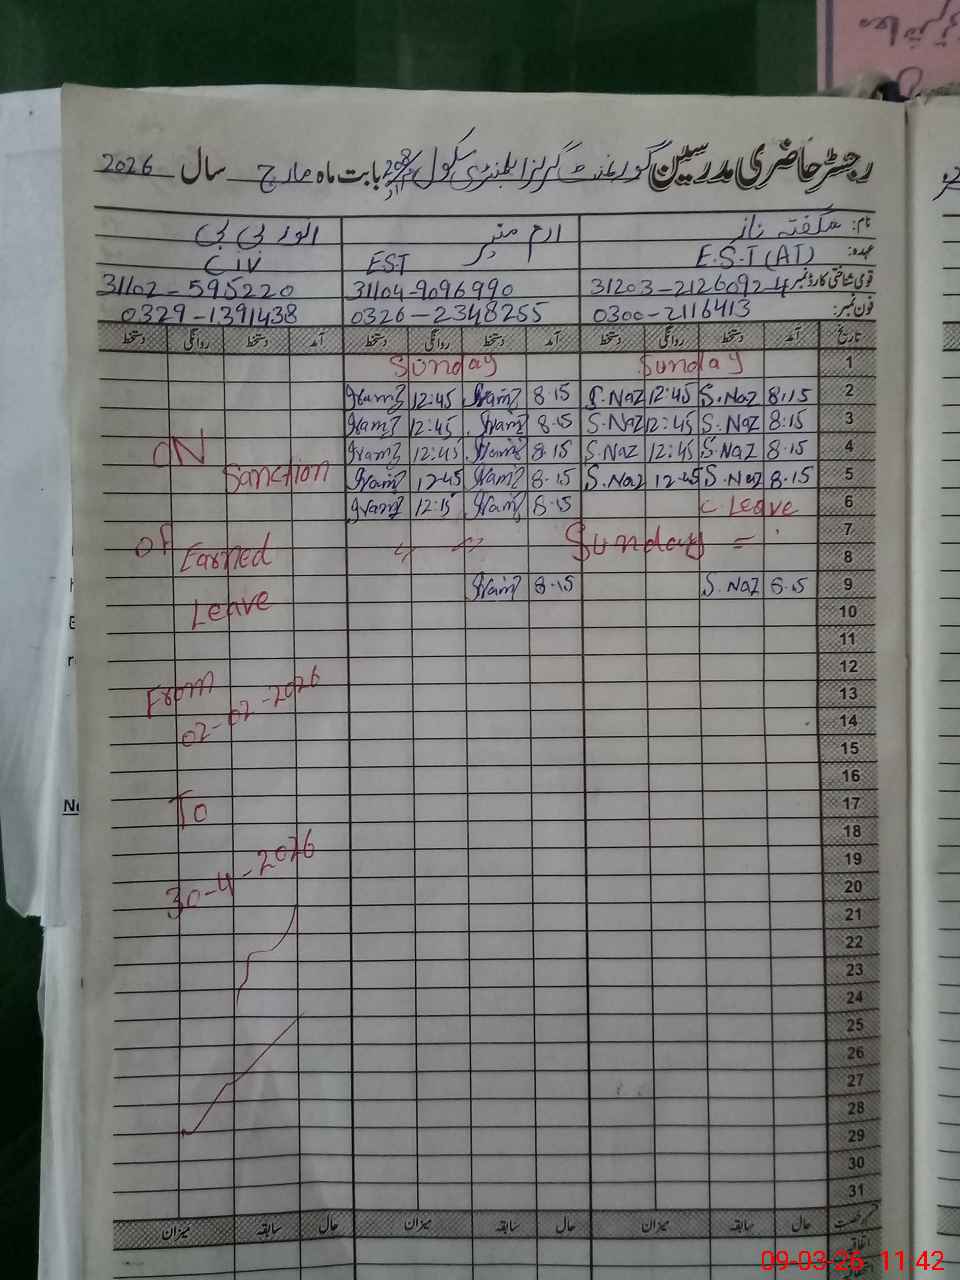 رجسٹر حاضری مدرسین گورنمنٹ گرلز ایلمنٹری سکول بابت ماہ مارچ سال 2026
نام: شگفتہ ناز ارم منیر انور بی بی
عہدہ: E.S.T (AT) EST CIV
قومی شناختی کارڈ نمبر 31203-2126092-4 31104-9096990 31102-595220
فون نمبر: 0300-2116413 0326-2348255 0329-1391438
تاریخ آمد دستخط روانگی دستخط آمد دستخط روانگی دستخط آمد دستخط روانگی دستخط
1 Sunday Sunday
2 8:15 S.Naz 12:45 S.Naz 8.15 12:45
3 8:15 S.Naz 12:45 S.Naz 8.15 12:45
4 8:15 S.Naz 12:45 S.Naz 8.15 12:45
5 8.15 S.Naz 12:45 S.Naz 8.15 12:45
6 C.Leave 8.15 12:15
7
Sunday =
8
9 8.15 S.Naz 8.15
10
11
12
13
14
15
16
17
18
19
20
21
22
23
24
25
26
27
28
29
30
31
ON
Sanction
OF Earned
Leave
From
02-02-2026
To
30-4-2026
حال سابقہ میزان حال سابقہ میزان حال سابقہ میزان
09-03-26 11:42